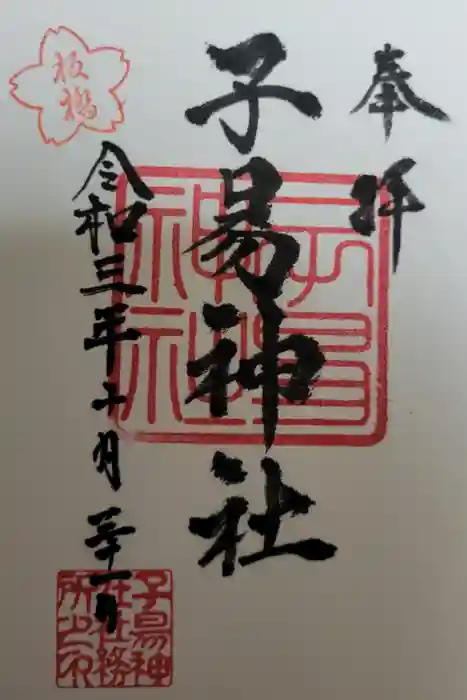 奉拝
子易神社
令和三年十月二十一日
板橋
子易神社
子易神社社務所之印